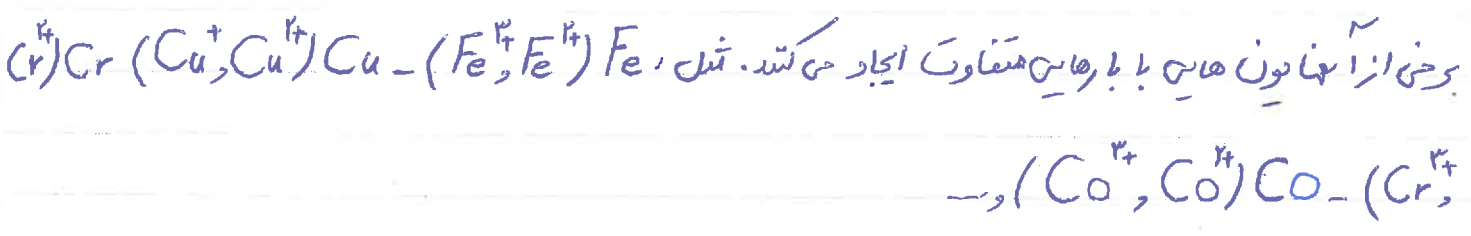 برخی از آنها یون هایی با بارهایی متفاوت ایجاد می کنند. مثل، Fe (Fe²⁺, Fe³⁺) - Cu (Cu²⁺, Cu⁺) Cr (Cr²⁺
, Cr³⁺) - Co (Co²⁺, Co³⁺) و ...